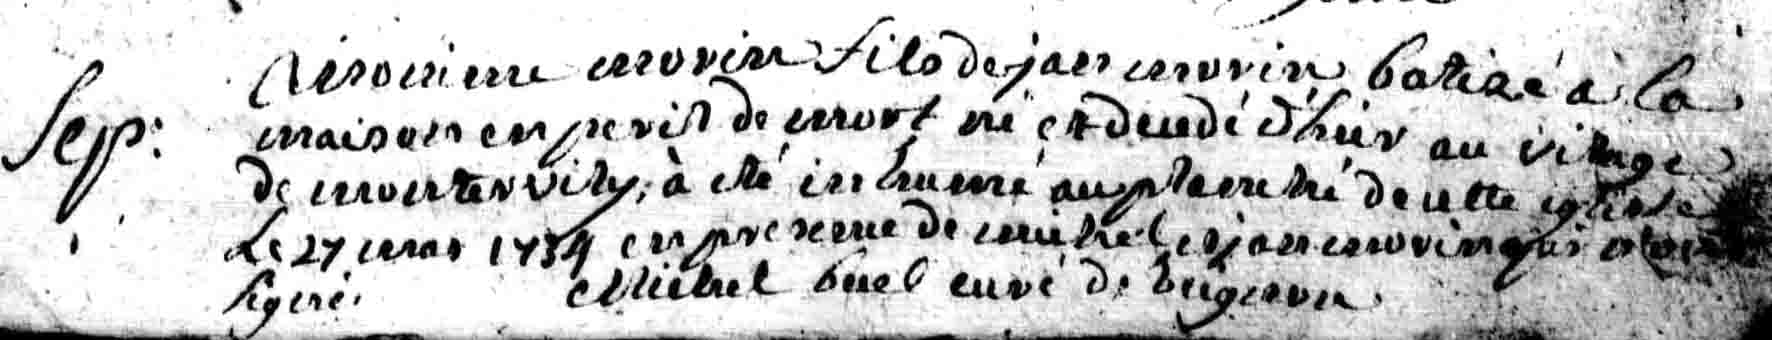 Sep:
morin fils de jan morin batizé à la
maison en peril de mort né et decedé d'hier au vilage
de , à eté inhumé au plantié de cette eglise
Le 27 mar 1734 en presence de michel et jan morin qui n'ont
signé. Michel curé de